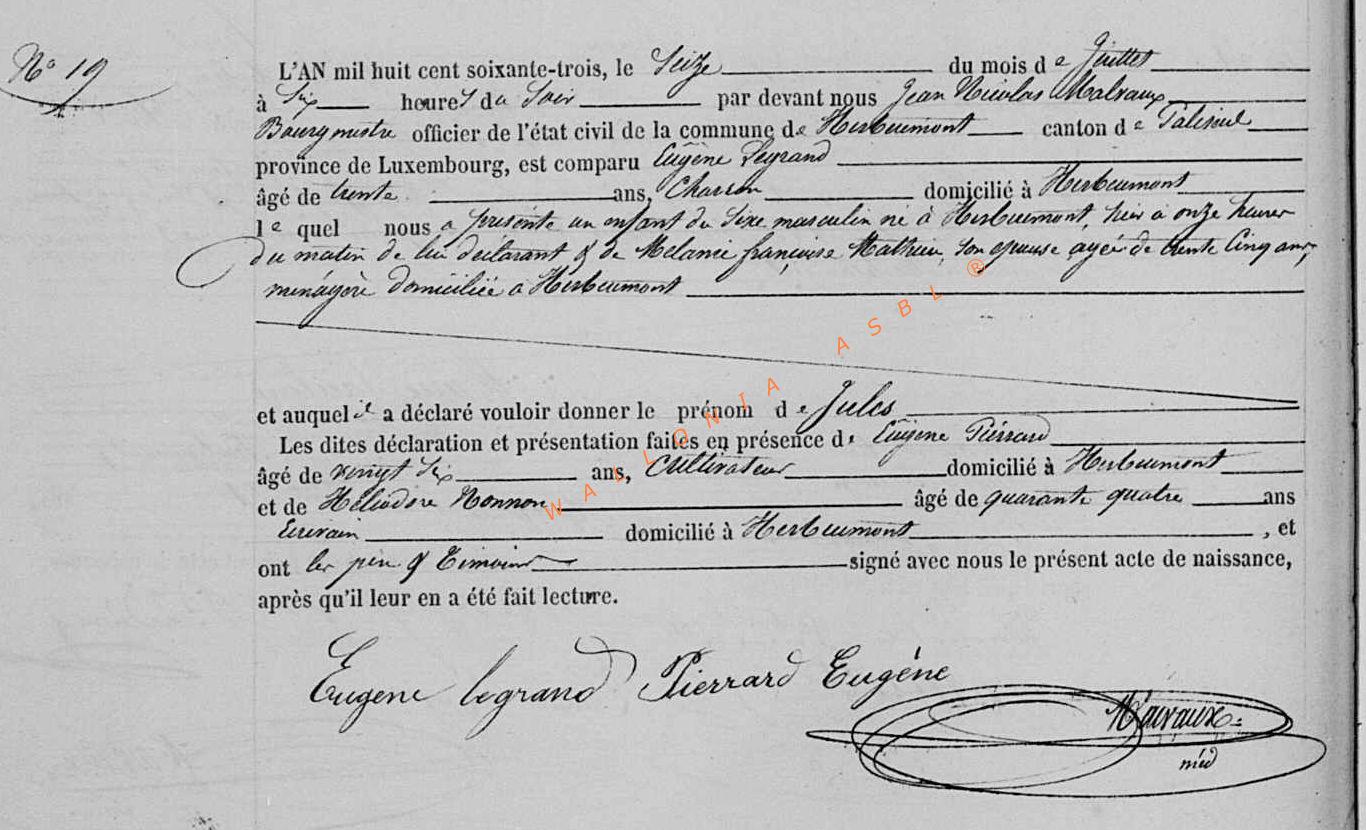 N° 19
L'AN mil huit cent soixante-trois, le Seize du mois de Juillet
à Six heures du Soir par devant nous Jean Nicolas Malvaux
Bourgmestre officier de l'état civil de la commune de Herbeumont canton de Paliseul
province de Luxembourg, est comparu Eugène Legrand
âgé de trente ans, Charron domicilié à Herbeumont
le quel nous a présenté un enfant du Sexe masculin né à Herbeumont, hier à onze heures
du matin de lui déclarant & de Mélanie françoise Mathieu, son épouse agée de trente Cinq ans,
ménagère domiciliée à Herbeumont
et auquel il a déclaré vouloir donner le prénom de Jules
Les dites déclaration et présentation faites en présence de Eugène Piérrard
âgé de vingt Six ans, Cultivateur domicilié à Herbeumont
et de Héliodore Nonnon âgé de quarante quatre ans
Ecrivain domicilié à Herbeumont, et
ont les père & Témoins signé avec nous le présent acte de naissance,
après qu'il leur en a été fait lecture.
Eugene legrand Pierrard Eugéne
WALLONIA ASBL ®